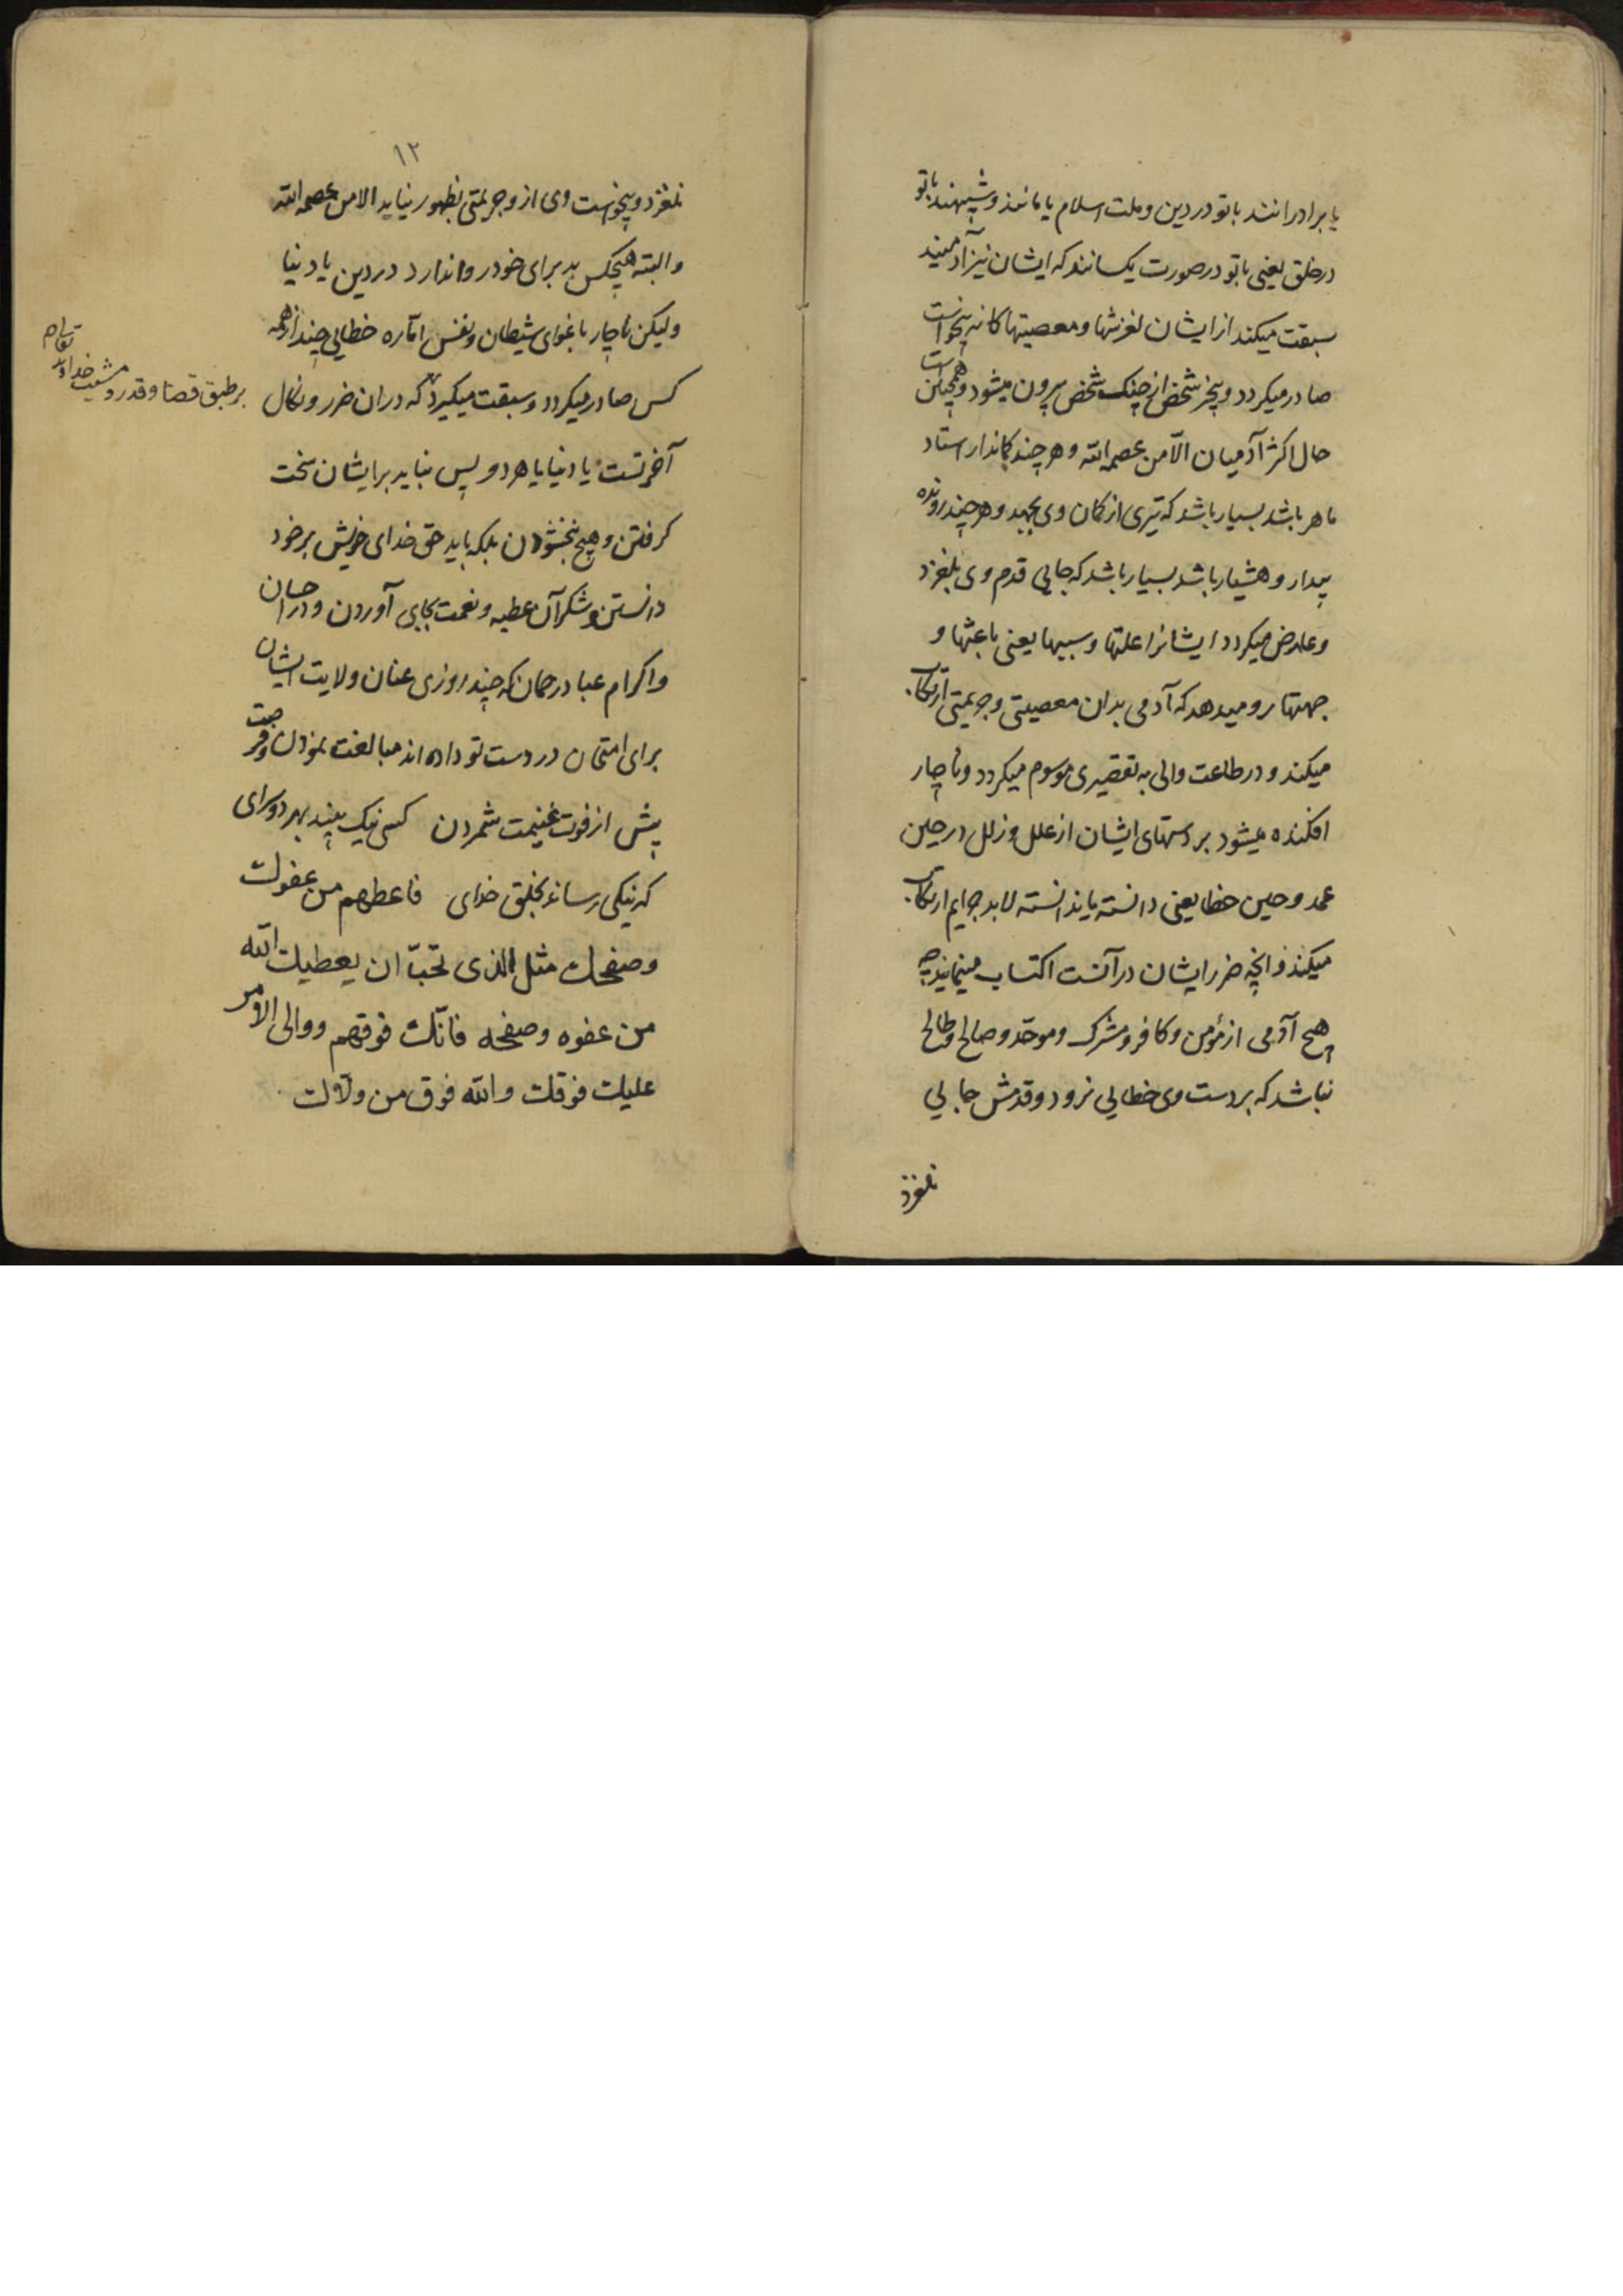 یا برادرانند با تو در دین و ملت اسلام یا مانند و شبیهند با تو
در خلق یعنی با تو در صورت یکسانند که ایشان نیز آدمیند
سبقت میکند از ایشان لغزشها و معصیتها کانه بیخواست
صادر میکردد و بیخبر شخص از چنک شخص بیرون میشود و همچنین است
حال اکثر آدمیان الّا من عصمه الله و هر چند کاندار استاد
ماهر باشد بسیار باشد که تیری از کمان وی بجهد و هر چند رونده
بیدار و هشیار باشد بسیار باشد که جایی قدم وی بلغزد
و عارض میکردد ایشانرا علتها و سببها یعنی باعثها و
جهتها رو میدهد که آدمی بدان معصیتی و جریمتی ارتکاب
میکند و در طاعت والی به تقصیری موسوم میکردد و ناچار
افکنده میشود بر دستهای ایشان از علل و زلل در حین
عمد و حین خطا یعنی دانسته یا ندانسته لابد جرایم ارتکاب
میکنند و انچه ضرر ایشان در آنست اکتساب مینمایند چه
هیچ آدمی از مؤمن و کافر و مشرک و موحّد و صالح و طالح
نباشد که بر دست وی خطایی نرود و قدمش جایی
نلغزد
۱۲
نلغزد و بیخواست وی از و جریمتی بظهور نیاید الا من عصمه الله
و البته هیچکس بد برای خود روا ندارد در دین یا دنیا
ولیکن ناچار باغوای شیطان و نفس امّاره خطایی چند از همه
کس صادر میکردد و سبقت میکیرد که در ان ضرر و نکال
بر طبق قضا و قدر و مشیت خداوند
آخرتست یا دنیا یا هر دو پس نباید بر ایشان سخت
کرفتن و هیچ نبخشودن بلکه باید حق خدای خویش بر خود
دانستن و شکر آن عطیه و نعمت بجای آوردن و در احسان
و اکرام عباد رحمان که چند روزی عنان ولایت ایشان
برای امتحان در دست تو داده اند مبالغت نمودن و فرصت
پیش از فوت غنیمت شمردن کسی نیک بیند بهر دو سرای
که نیکی رساند بخلق خدای فاعطهم من عفوك
و صفحك مثل الذی تحبّ ان یعطیك الله
من عفوه و صفحه فانّك فوقهم و والی الامر
علیك فوقك و الله فوق من ولّاك